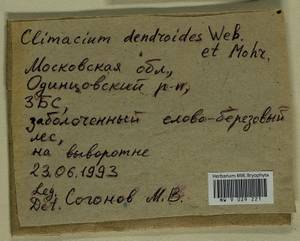 Climacium dendroides Web.
et Mohr.
Московская обл.,
Одинцовский р-н,
ЗБС,
заболоченный елово-березовый
лес,
на выворотне
23.06.1993
Leg.
Det. Согонов М.В.
Herbarium MW, Bryophyta